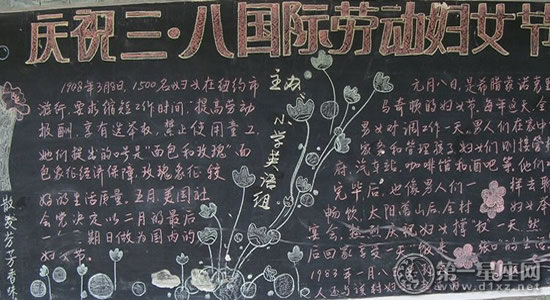 庆祝三·八国际劳动妇女节
1908年3月8日,1500名妇女在纽约市
游行,要求缩短工作时间,提高劳动
报酬,享有选举权,禁止使用童工
她们提出的口号是"面包和玫瑰",面
包象征经济保障,玫瑰象征较
好的生活质量。五月,美国社
会党决定以二月的最后
一 期日做为国内的
妇女节。
主办
小学英语组
散发芳香
元月八日,是希腊蒙诺克里
马 奇顿的妇女节,每年这天,全
男女对调工作一天,男人们在家中
家务和管理孩子,妇女们则接管
府、汽车站、咖啡馆和酒吧等,他们
完毕后,也像男人们一样去
畅饮,太阳落山后,全村妇女
宴会,热烈庆祝妇女撑权一天,然
后回家
1983年一月八
人
第一星座网
www.d1xz.net